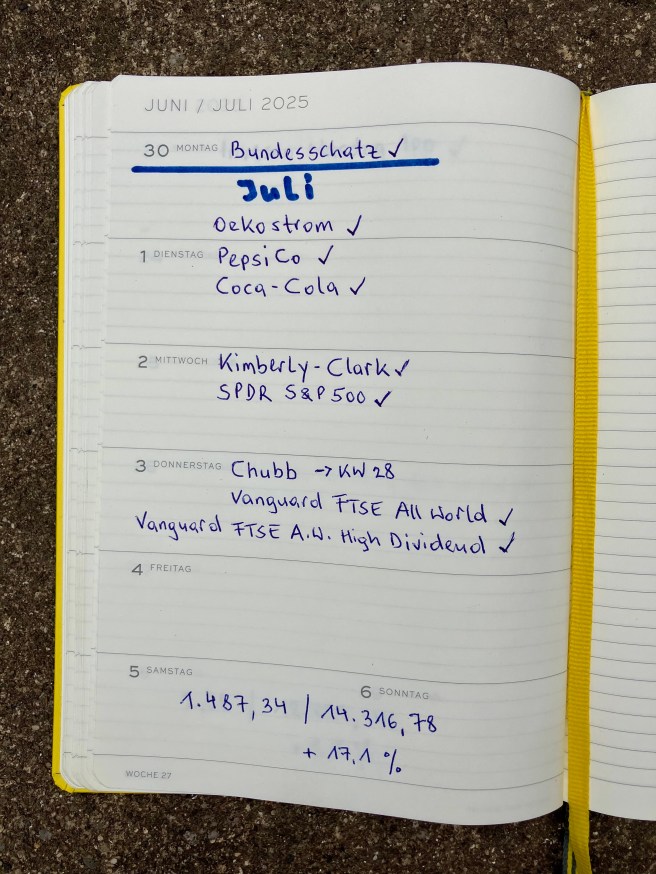 JUNI / JULI 2025
30 MONTAG Bundesschatz ✓
Juli
Oekostrom ✓
1 DIENSTAG PepsiCo ✓
Coca-Cola ✓
2 MITTWOCH Kimberly-Clark ✓
SPDR S&P 500 ✓
3 DONNERSTAG Chubb → KW 28
Vanguard FTSE All World ✓
Vanguard FTSE A.W. High Dividend ✓
4 FREITAG
5 SAMSTAG
6 SONNTAG
1.487,34 | 14.316,78
+ 17,1 %
WOCHE 27